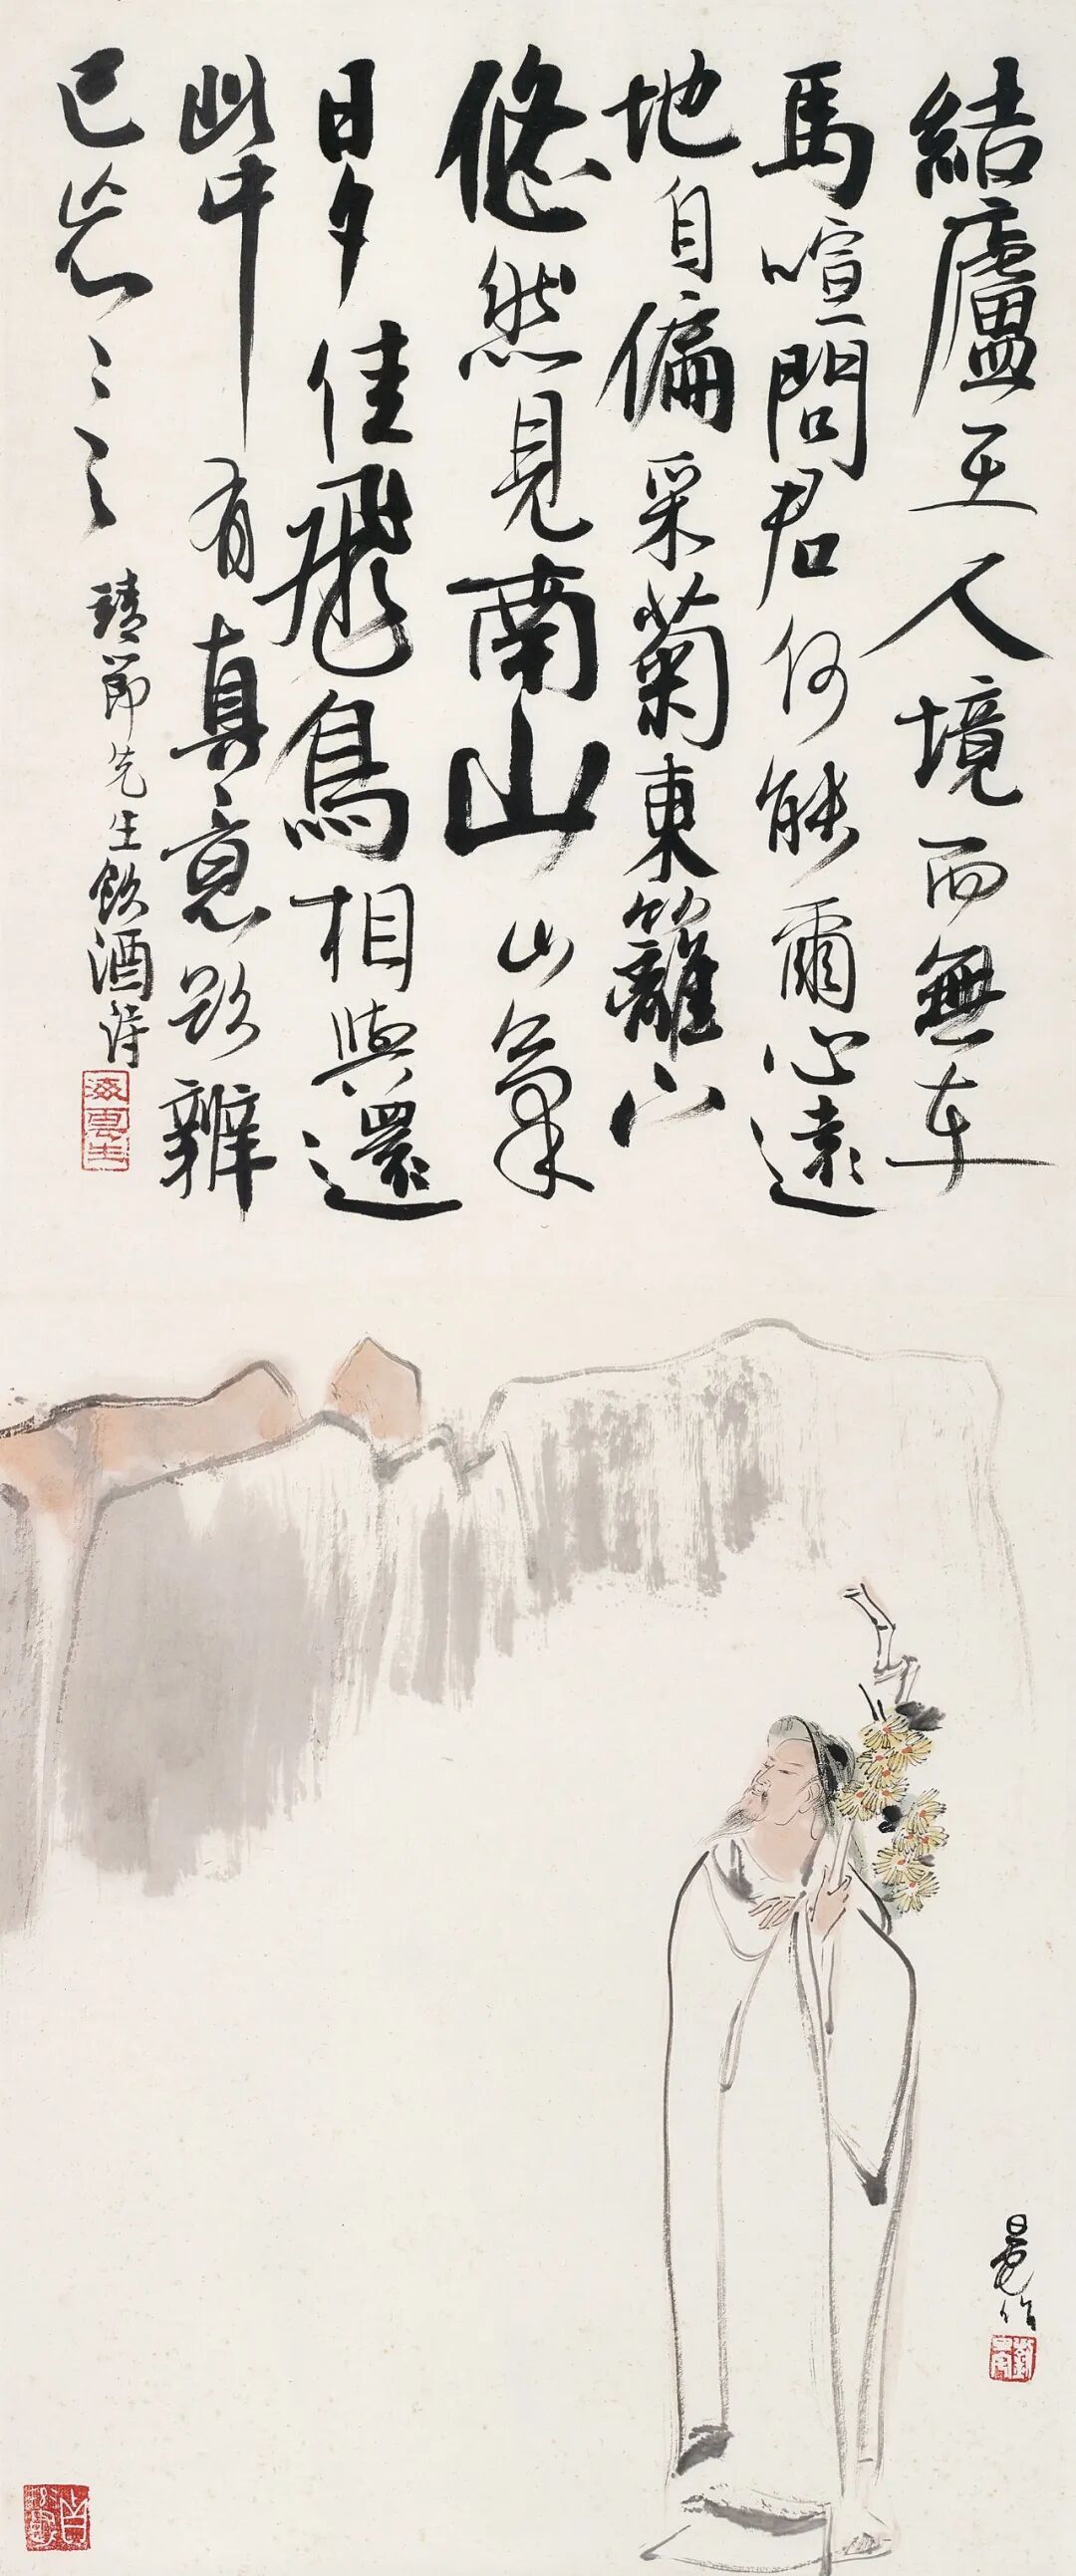 結廬在人境而無車
馬喧問君何能爾心遠
地自偏采菊東籬下
悠然見南山山氣
日夕佳飛鳥相與還
此中有真意欲辨
已忘言
靖節先生飲酒詩
旦宅作